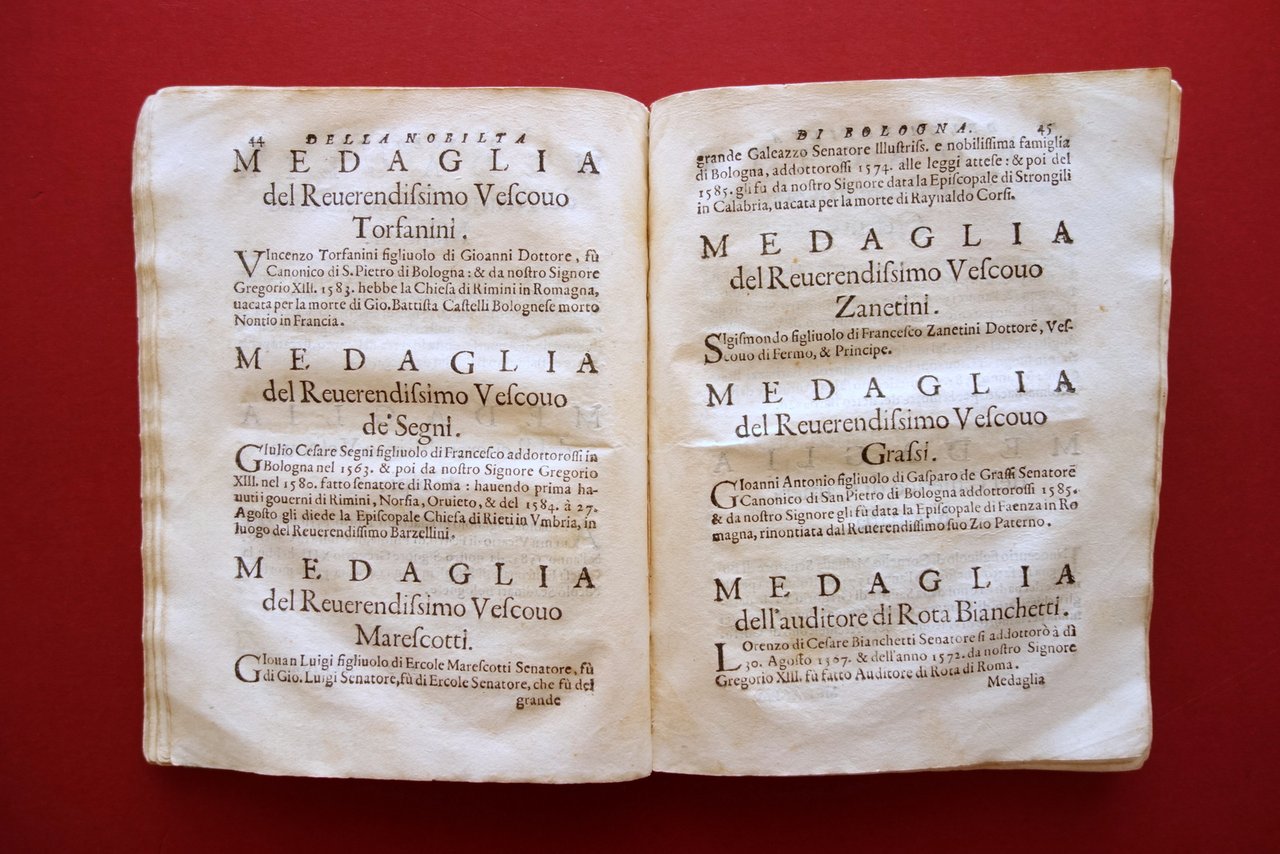 44 DELLA NOBILTA
MEDAGLIA
del Reuerendiſsimo Veſcouo
Torfanini.
VIncenzo Torfanini figliuolo di Gioanni Dottore, fù
Canonico di S. Pietro di Bologna: & da noſtro Signore
Gregorio XIII. 1583. hebbe la Chieſa di Rimini in Romagna,
uacata per la morte di Gio. Battiſta Caſtelli Bologneſe morto
Nontio in Francia.
MEDAGLIA
del Reuerendiſsimo Veſcouo
de' Segni.
GIulio Ceſare Segni figliuolo di Franceſco addottoroſſi in
Bologna nel 1563. & poi da noſtro Signore Gregorio
XIII. nel 1580. fatto ſenatore di Roma: hauendo prima ha-
nuti i gouerni di Rimini, Norſia, Oruieto, & del 1584. à 27.
Agoſto gli diede la Epiſcopale Chieſa di Rieti in Vmbria, in
luogo del Reuerendiſſimo Barzellini.
MEDAGLIA
del Reuerendiſsimo Veſcouo
Mareſcotti.
GIouan Luigi figliuolo di Ercole Mareſcotti Senatore, fù
di Gio. Luigi Senatore, fù di Ercole Senatore, che fù del
grande
DI BOLOGNA. 45
grande Galeazzo Senatore Illuſtriſs. e nobiliſſima famiglia
di Bologna, addottoroſſi 1574. alle leggi atteſe: & poi del
1585. gli fù da noſtro Signore data la Epiſcopale di Strongili
in Calabria, uacata per la morte di Raynaldo Corſi.
MEDAGLIA
del Reuerendiſsimo Veſcouo
Zanetini.
SIgiſmondo figliuolo di Franceſco Zanetini Dottore, Veſ-
couo di Fermo, & Principe.
MEDAGLIA
del Reuerendiſsimo Veſcouo
Graſsi.
GIoanni Antonio figliuolo di Gaſparo de Graſſi Senatore
Canonico di San Pietro di Bologna addottoroſſi 1585.
& da noſtro Signore gli fù data la Epiſcopale di Faenza in Ro
magna, rinontiata dal Reuerendiſſimo ſuo Zio Paterno.
MEDAGLIA
dell'auditore di Rota Bianchetti.
LOrenzo di Ceſare Bianchetti Senatore ſi addottorò à dì
30. Agoſto 1567. & dell'anno 1572. da noſtro Signore
Gregorio XIII. fù fatto Auditore di Rota di Roma.
Medaglia